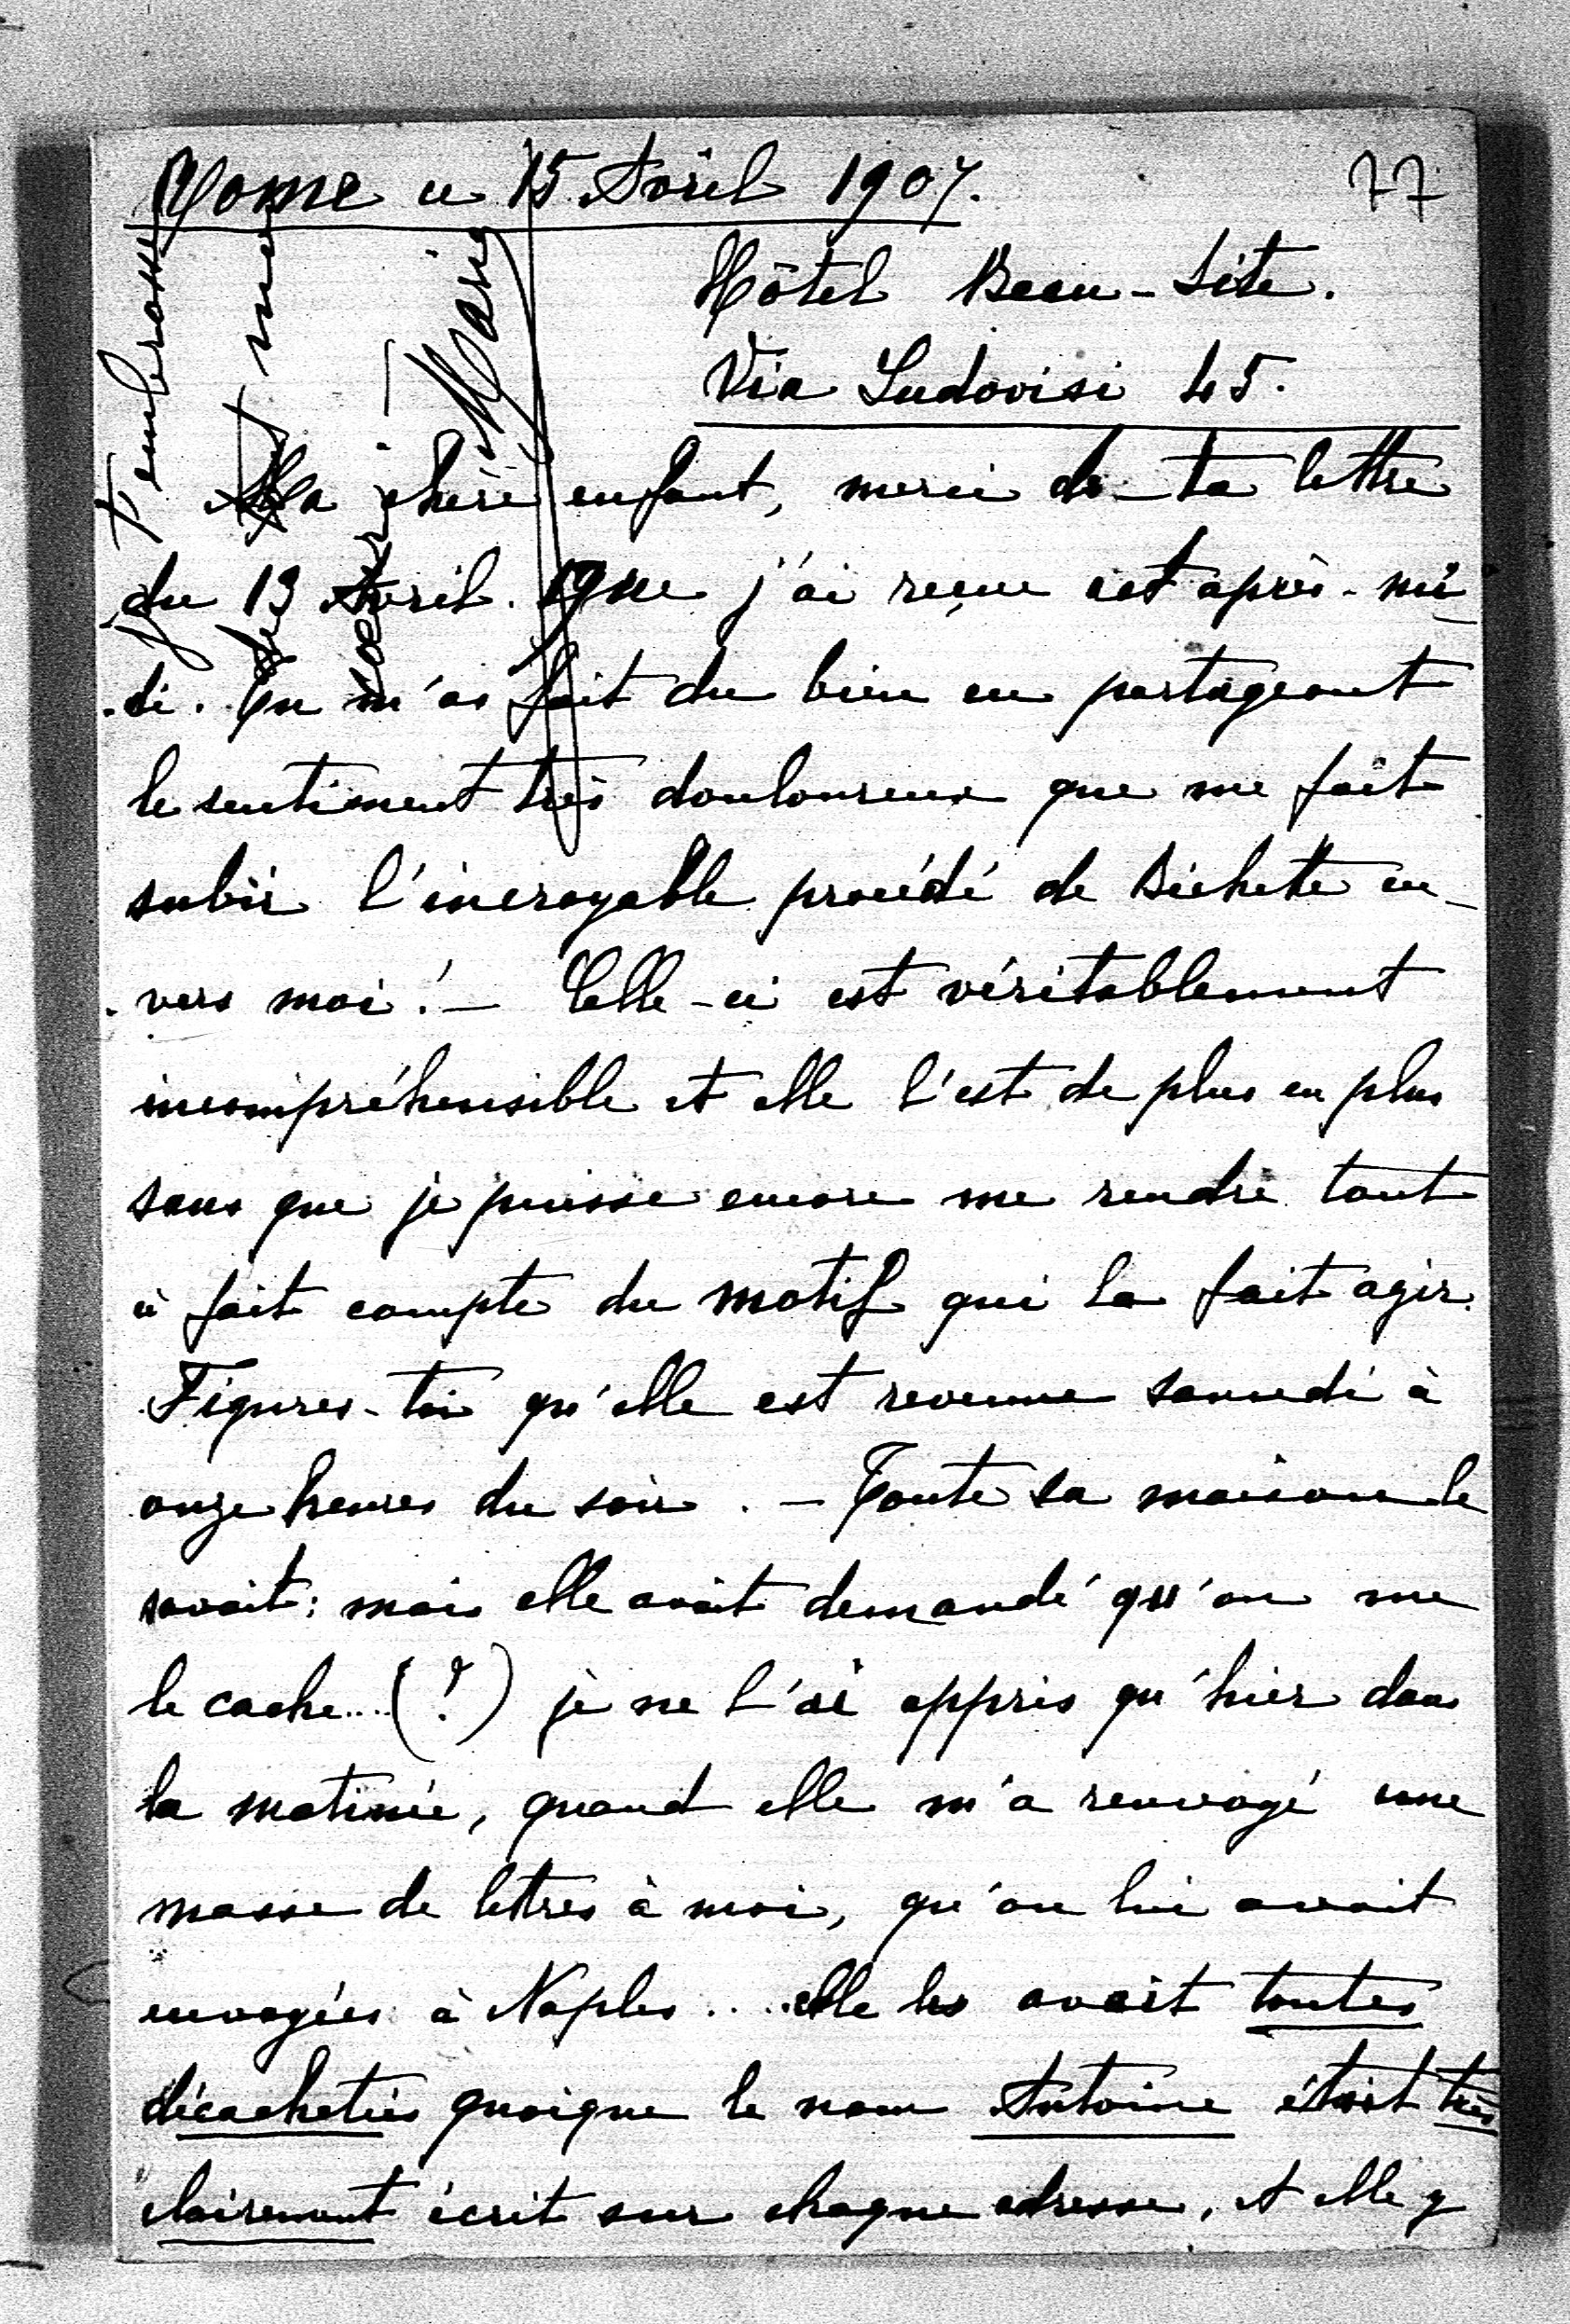 Rome ce 15 Avril 1907.
77
Hôtel Beau-Site.
Via Ludovisi 45.
Ma chère enfant, merci de ta lettre
du 13 Avril que j'ai reçue cet après-mi
di. Tu m'as fait du bien en partageant
le sentiment très douloureux que me fait
subir l'incroyable procédé de Bichette en-
vers moi! – Celle-ci est véritablement
incompréhensible et elle l'est de plus en plus
sans que je puisse encore me rendre tout
à fait compte du motif qui la fait agir.
Figures-toi qu'elle est revenue samedi à
onze heures du soir. – Toute sa maison le
savait; mais elle avait demandé qu'on me
le cache... (?) je ne l'ai appris qu'hier dans
la matinée, quand elle m'a renvoyé une
masse de lettres à moi, qu'on lui avait
envoyées à Naples... elle les avait toutes
décachetées quoique le nom Antoine étoit très
clairement écrit sur chaque adresse, et elle y
Je t'embrasse
Marie